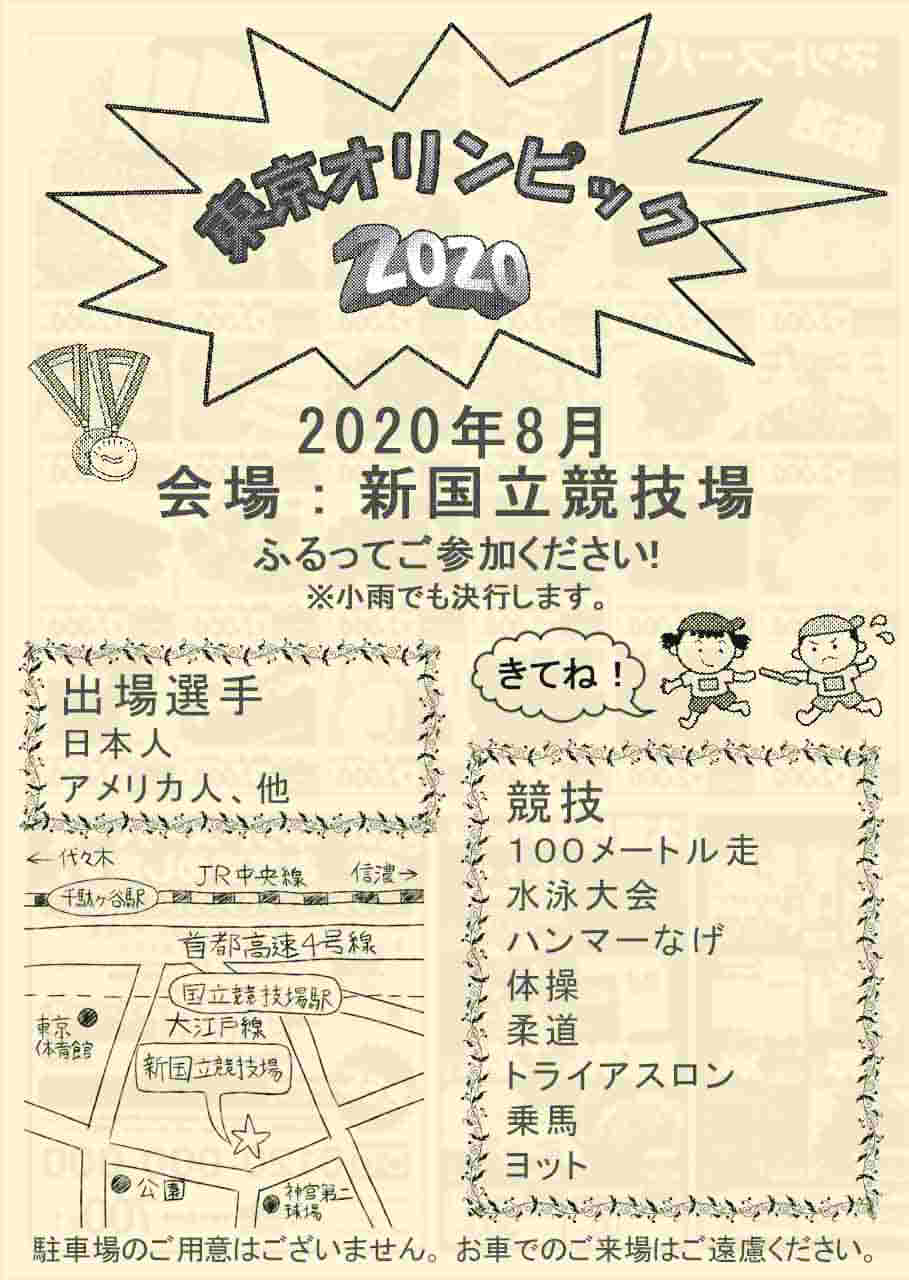 東京オリンピック
2020
2020年8月
会場：新国立競技場
ふるってご参加ください!
※小雨でも決行します。
きてね！
出場選手
日本人
アメリカ人、他
競技
１００メートル走
水泳大会
ハンマーなげ
体操
柔道
トライアスロン
乗馬
ヨット
←代々木
JR中央線
信濃→
千駄ヶ谷駅
首都高速4号線
国立競技場駅
大江戸線
東京
体育館
新国立競技場
公園
神宮第二
球場
駐車場のご用意はございません。お車でのご来場はご遠慮ください。
ネットスーパー